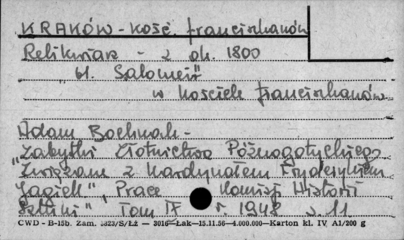 KRAKÓW - kość. franciszkanów
Relikwiarz - z ok. 1800
"bł. Salomei"
w kościele franciszkanów
Adam Bochnak -
"Zabytki Złotnictwa Późnogotyckiego
Związane z Kardynałem Fryderykiem
Jagiell", Prace Komisji Historii
Sztuki" Tom IX r. 1948 s. 11.
CWD - B-15b. Zam. 3823/S/Łż — 3016—Łak—15.11.56—4.000.000—Karton kl. IV A1/200 g